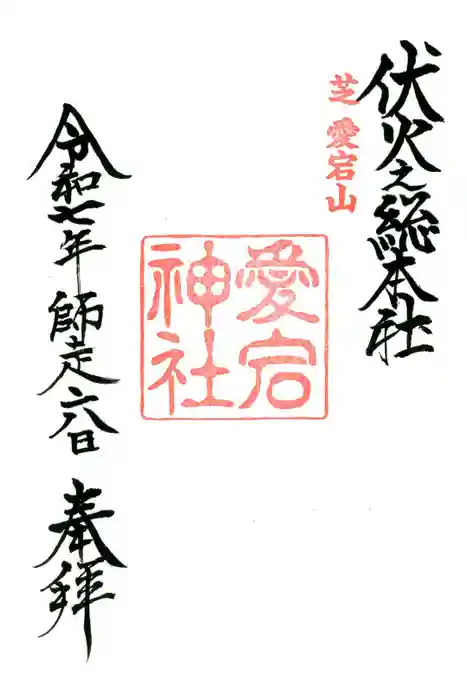 伏火之総本社
芝 愛宕山
愛宕
神社
令和七年 師走六日
奉拝